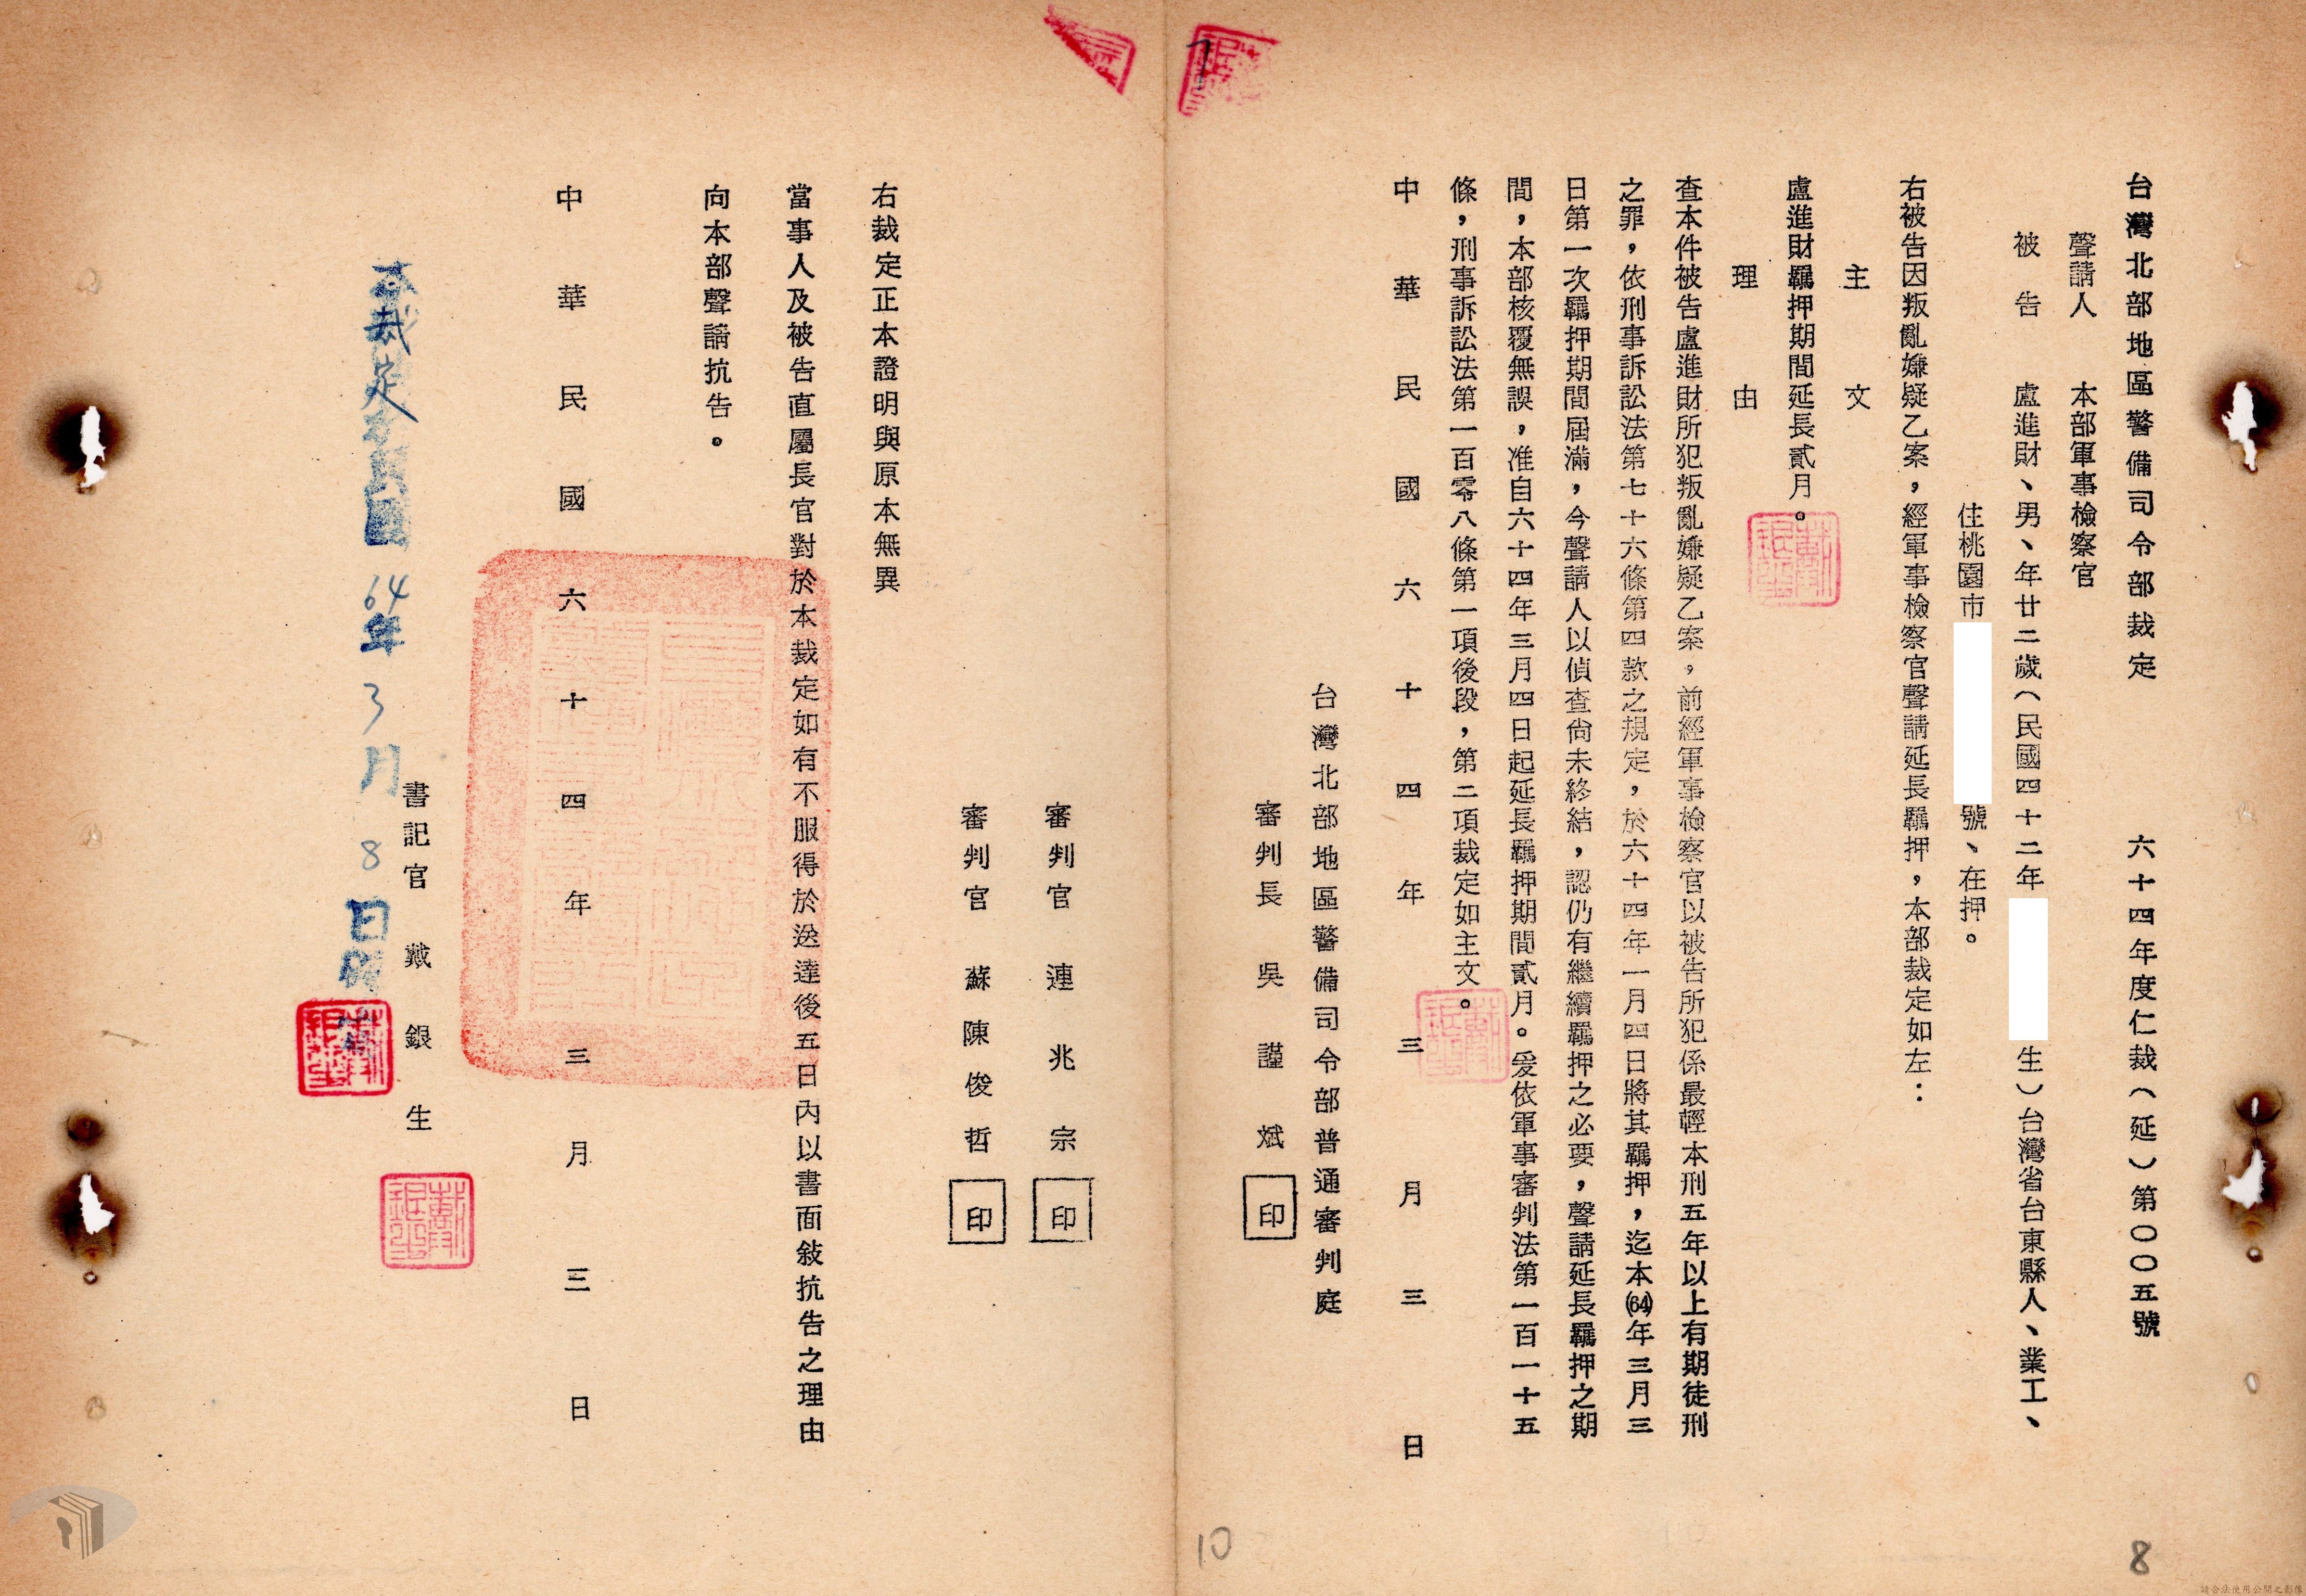 台灣北部地區警備司令部裁定　六十四年度仁裁（延）第〇〇五號
聲請人　本部軍事檢察官
被告　盧進財、男、年廿二歲（民國四十二年　生）台灣省台東縣人、業工、
住桃園市　號、在押。
右被告因叛亂嫌疑乙案，經軍事檢察官聲請延長羈押，本部裁定如左：
主文
盧進財羈押期間延長貳月。
理由
查本件被告盧進財所犯叛亂嫌疑乙案，前經軍事檢察官以被告所犯係最輕本刑五年以上有期徒刑
之罪，依刑事訴訟法第七十六條第四款之規定，於六十四年一月四日將其羈押，迄本(64)年三月三
日第一次羈押期間屆滿，今聲請人以偵查尚未終結，認仍有繼續羈押之必要，聲請延長羈押之期
間，本部核覆無誤，准自六十四年三月四日起延長羈押期間貳月。爰依軍事審判法第一百一十五
條，刑事訴訟法第一百零八條第一項後段，第二項裁定如主文。
中華民國六十四年三月三日
台灣北部地區警備司令部普通審判庭
審判長　吳謹斌　印
審判官　連兆宗　印
審判官　蘇陳俊哲　印
右裁定正本證明與原本無異
當事人及被告直屬長官對於本裁定如有不服得於送達後五日內以書面敍抗告之理由
向本部聲請抗告。
中華民國六十四年三月三日
書記官　戴銀生
本裁定　民國64年3月8日
戴銀生
10
8
請合法使用公開之影像